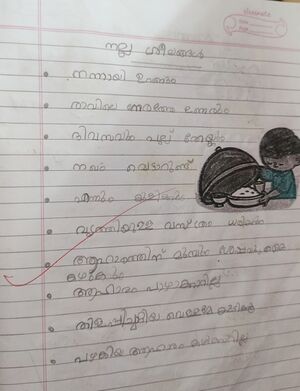 classmate
Date
Page
നല്ല ശീലങ്ങൾ
നന്നായി ഉറങ്ങും
രാവിലെ നേരത്തേ ഉണരും
ദിവസവും പല്ല് തേക്കും
നഖം വെട്ടാറുണ്ട്
എന്നും കുളിക്കും
വൃത്തിയുള്ള വസ്ത്രം ധരിക്കും
ആഹാരത്തിന് മുമ്പും ശേഷവും കൈ
കഴുകും
ആഹാരം പാഴാക്കില്ല
തിളപ്പിച്ചാറിയ വെള്ളമേ കുടിക്കൂ
പഴകിയ ആഹാരം കഴിക്കില്ല